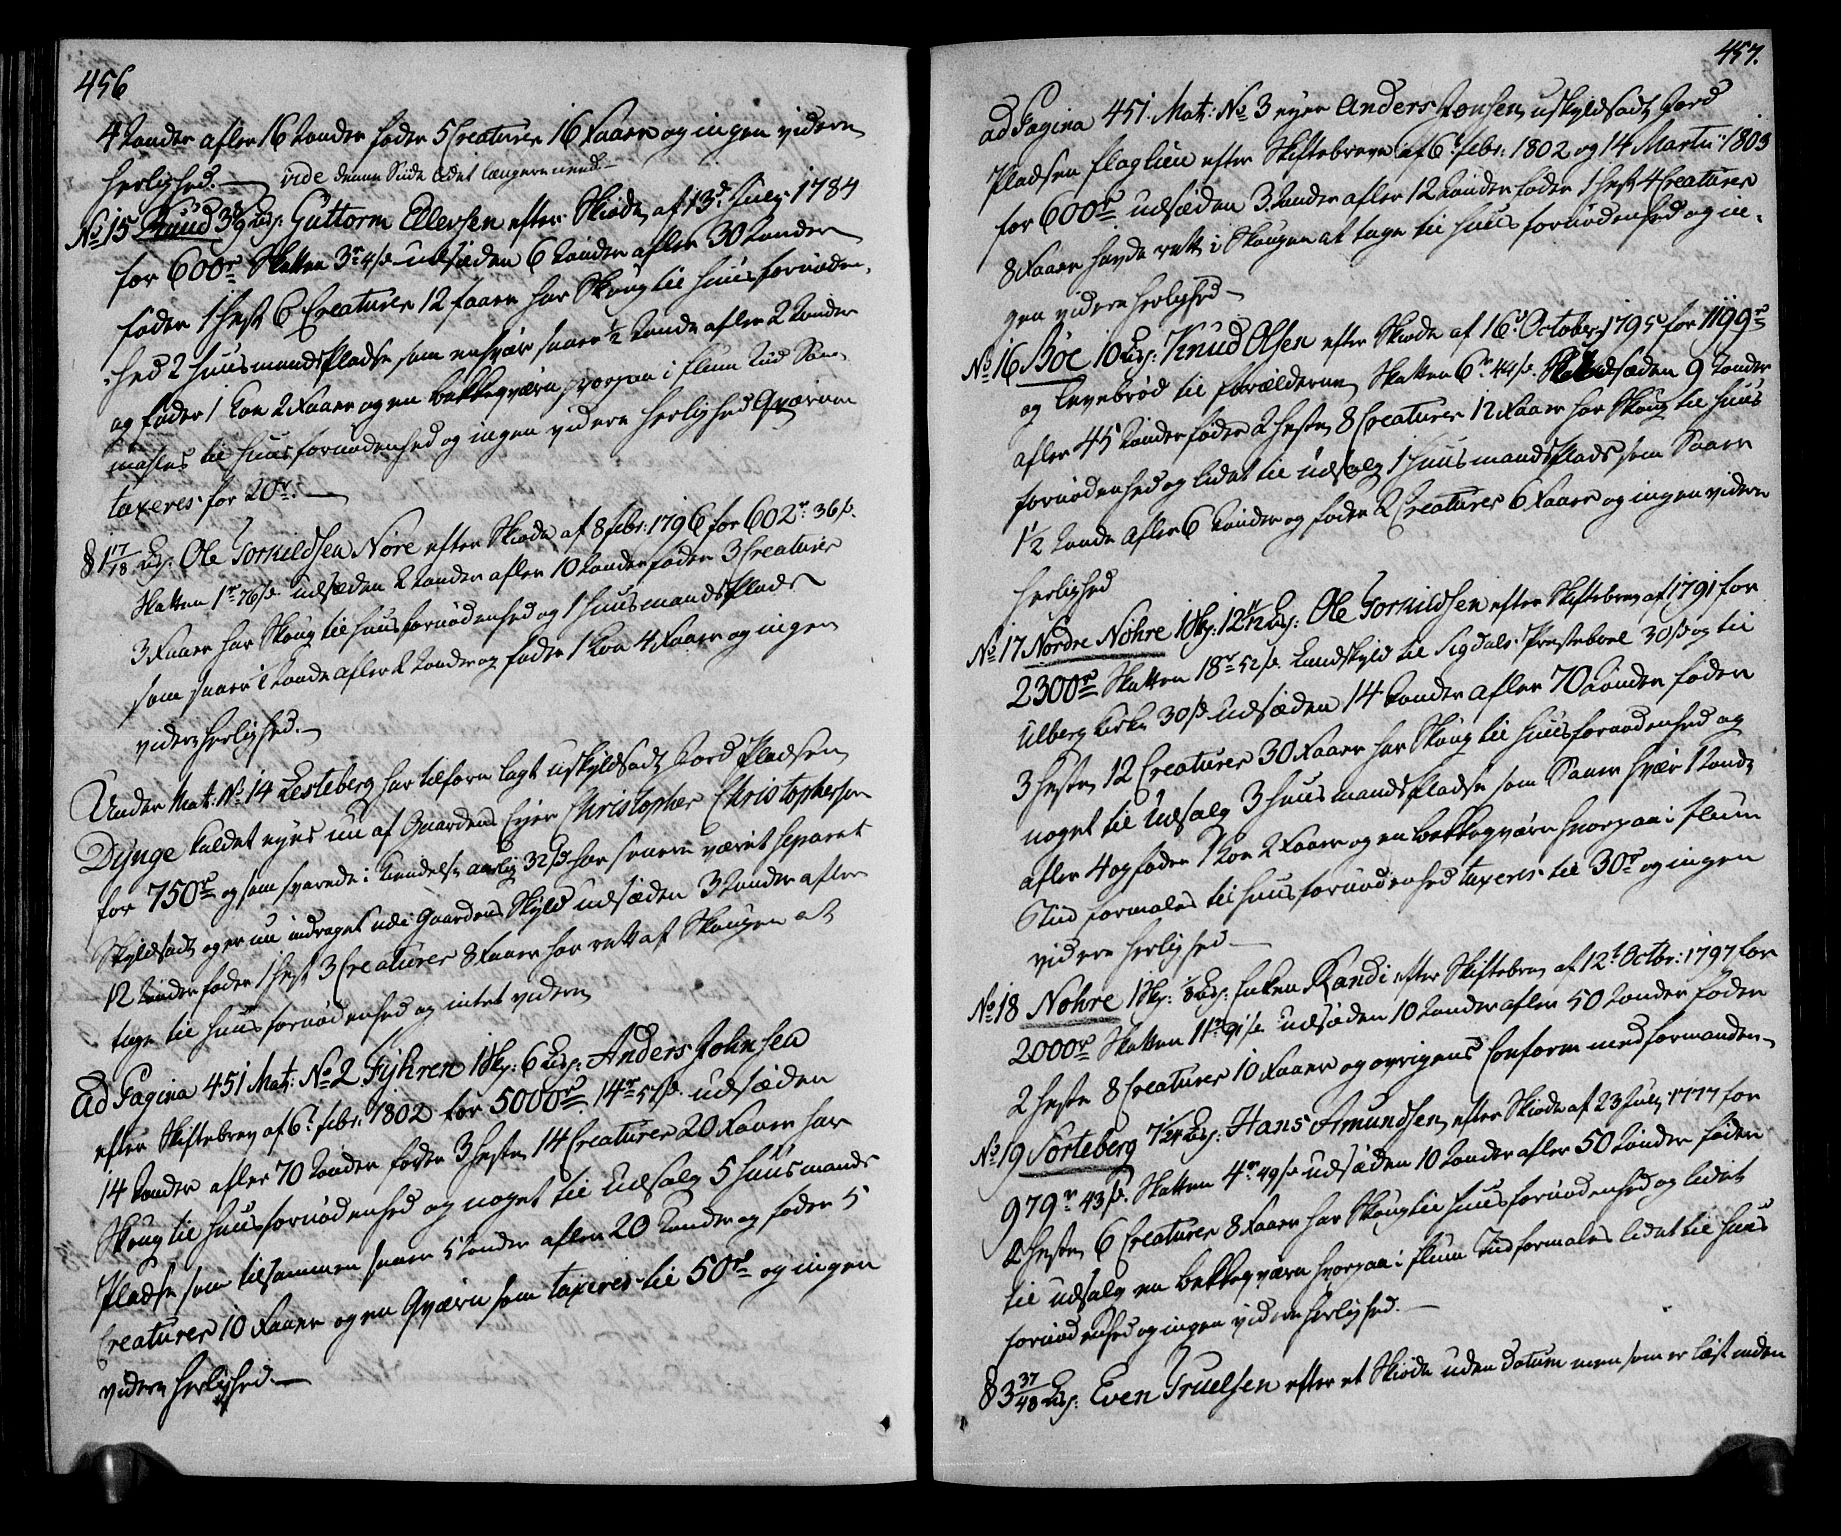 456
4 Tønder afler 16 Tønder føder 5 Creaturer 16 Faarer og ingen videre
herlighed. — vide denne Side lidet længere nend
No 15 Ruud 3 Lisp: Guttorm Ellevsen efter Skiøde af 13d July 1784
for 600r Skatten 3r 4s udsæden 6 Tønder afler 30 Tønder
føder 1 Hest 6 Creaturer 12 faarer har Skoug til Huusfornøden-
hed 2 Huusmandspladse som enhvær saaer ½ Tønde afler 2 Tønder
og føder 1 Koe 2 Faarer og en bekkeqværn hvorpaa i flum Tiid Som-
mahles til Huusfornødenhed og ingen videre herlighed Qværnen
taxeres for 20r —
8 1 17/18 Lisp: Ole Torkildsen Nøre efter Skiøde af 8 febr: 1796 for 602r 36s.
Skatten 1r 76s. udsæden 2 Tønder afler 10 Tønder føder 3 Creaturer
3 Faarer har Skoug til Huusfornødenhed og 1 Huusmandsplads
som saaer ½ Tønde afler 2 Tønder og føder 1 Koe 4 Faarer og ingen
videre herlighed. —
Under Mat: No 14 Lesteberg har tilforn lagt uskyldsadt Jord Pladsen
Dynge kaldet eyes nu af Gaardens Eyer Christopher Christophersen
for 750r og som svarede i Kiendelse aarlig 32s har senere været separat
Skyldsadt og er nu inddraget udi Gaardens Skyld udsæden 3 Tønder afler
12 Tønder føder 1 Hest 3 Creaturer 8 Faarer har rett af Skougen at
tage til Huusfornødenhed og intet videre
Ad Pagina 451 Mat: No 2 Fyhren 1 Sk: 6 Lisp: Anders Johnsen
efter Skiftebrev af 6t febr: 1802 for 5000r. 14r 57s. udsæden
14 Tønder afler 70 Tønder føder 3 Heste 14 Creaturer 20 Faarer har
Skoug til Huusfornødenhed og noget til Udsalg 5 Huusmands
Pladse som tilsammen saaer 5 Tønder afler 20 Tønder og føder 5
Creaturer 10 Faarer og en Qværn som taxeres til 50r og ingen
videre herlighed. —
457.
ad Pagina 451. Mat: No 3 eyer Anders Jonsen uskyldsadt Jord
Pladsen flaglien efter Skiftebreve af 6t febr: 1802 og 14 Martii 1803
for 600r udsæden 3 Tønder afler 12 Tønder føder 1 Hest 4 Creaturer
8 Faarer havde rett i Skougen at tage til Huusfornødenhed og in-
gen videre herlighed —
No 16 Bøe 10 Lisp: Knud Olsen efter Skiøde af 16d October 1795 for 1199r
og Levebrød til forælderne Skatten 6r 44s. udsæden 9 Tønder
afler 45 Tønder føder 2 Heste 8 Creaturer 12 Faarer har Skoug til Huus
fornødenhed og lidet til Udsalg 1 Huusmandsplads som Saaer
1½ Tønde afler 6 Tønder og føder 2 Creaturer 6 Faarer og ingen videre
herlighed
No 17 Nordre Nøhre 1 Sk: 12 Lisp: Ole Torkildsen efter Skiftebrev af 1791 for
2300r Skatten 18r 52s. Landskyld til Sigdals Præsteboel 30s og til
Ulberg Kirke 30s udsæden 14 Tønder afler 70 Tønder føder
3 Heste 12 Creaturer 30 Faarer har Skoug til Huusfornødenhed og
noget til Udsalg 3 Huusmandspladse som Saaer hvær 1 Tønde
afler 4 og føder 1 Koe 2 Faarer og en bekkeqværn hvorpaa i flum
Tiid formales til Huusfornødenhed taxeres til 30r og ingen
videre herlighed —
No 18 Nohre 1 Sk: Lisp: Enken Randi efter Skiftebrev af 12t Octbr: 1797 for
2000r Skatten 11r 91s udsæden 10 Tønder afler 50 Tønder føder
2 Heste 8 Creaturer 10 Faarer og øvrigens Conform med formanden
No 19 Sorteberg 7 Lisp: Hans Amundsen efter Skiøde af 23 July 1777 for
979r 43s. Skatten 4r 49s udsæden 10 Tønder afler 50 Tønder føder
2 Heste 6 Creaturer 8 Faarer har Skoug til Huusfornødenhed og lidet
til udsalg en bekkeqværn hvorpaa i flum Tiid formales lidet til Huus
fornødenhed og ingen videre herlighed. —
8 3 37/48 Lisp: Even Truelsen efter et Skiøde uden datum men som er læst inden